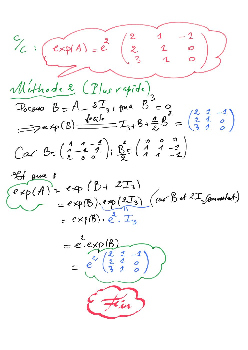 c/c: exp(A) = e² ( 2 1 -1 / 2 1 0 / 3 1 0 )
Méthode 2 (Plus rapide)
Posons B = A - 2I₃, on a B³ = 0
⟹ exp(B) = I₃ + B + ½ B² = ( 2 1 -1 / 2 1 0 / 3 1 0 )
Car B = ( 1 1 -1 / 1 -1 1 / 2 0 0 )
exp(A) = exp(B + 2I₃)
= exp(B) · exp(2I₃) (car B et 2I₃ commutent)
= exp(B) · e² · I₃
= e² · exp(B)
= e² ( 2 1 -1 / 2 1 0 / 3 1 0 )
Fin